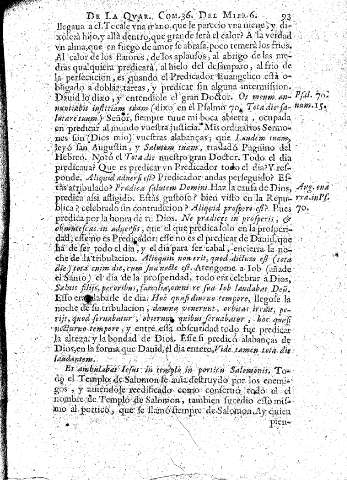 DE LA QVAR. COM. 36. DEL MIER. 6. 93
llegaua a el. Tecale vna mano, que le parecio vna nieue, y di-
xole à hijo, y allà dentro, que grande serà el calor? A la verdad
vn alma, que en fuego de amor se abrasa, poco temerà los frios.
Al calor de los fauores, de los aplausos, al abrigo de las me-
dras qualquiera predicarà, al hielo del desamparo, al frio de
la persecucion, es quando el Predicador Euangelico està o-
bligado a doblar tareas, y predicar sin alguna intermission.
Dauid lo dixo, y entendiole el gran Doctor. Os meum an-
nuntiabit iustitiam tuam (dixo en el Psalmo 70. Tota die sa-
lutare tuum) Señor, siempre tuue mi boca abierta, ocupada
en predicar al mundo vuestra justicia. Mis ordinarios Sermo-
nes son (Dios mio) vuestras alabanças, que Laudem tuam,
leyò san Augustin, y Salutem tuam, tradaxò Pagnino del
Hebreo. Notò el Tota die nuestro gran Doctor. Todo el dia
predicaua? Que es predicar vn Predicador todo el dia? Y res-
ponde. Aliquid aduersi est? Predicador andas perseguido? Es-
tàs atribulado? Prædica salutem Domini. Haz la causa de Dios,
predica assi afligido. Estàs gustoso? bien visto en la Repu-
blica? celebrado sin contradicion? Aliquid prospere est? Pues
predica por la honra de tu Dios. Ne prædices in prosperis, &
obmutescas in aduersis, que el que predica solo en la prosperi-
dad, esse no es Predicador; esse no es el predicar de Dauid, que
ha de ser todo el dia, y el dia para ser cabal, encierra la no-
che de la tribulacion. Alioquin non erit, quod dictum est (tota
die) tota enim die, cum sua nocte est. Atengome a Iob (añade
el Santo) el dia de la prosperidad, todo era celebrar a Dios,
Saluis filijs, pecoribus, familia, omni re sua Iob laudabat Deũ.
Esso era alabarle de dia. Hoc quasi diurno tempore, llegose la
noche de su tribulacion, damna venerunt, orbitas irruit, pe-
rijt, quod seruabatur, obierunt, quibus seruabatur, hoc quasi
nocturno tempore, y entre essa obscuridad todo fue predicar
la alteza, y la bondad de Dios. Esse si predicò alabanças de
Dios, en la forma que Dauid, el dia entero, Vide tamen tota die
laudantem.
Et ambulabat Iesus in templo in porticu Salomonis. To-
do el Templo de Salomon se auia destruydo por los enemi-
gos, y auiendose reedificado como conseruò todo el el
nombre de Templo de Salomon, tambien sucediò esso mis-
mo al portico, que se llamò siempre de Salomon. Ay quien
pien-
Psal. 70.
num. 15.
Aug. ena
rra. in Ps.
70.